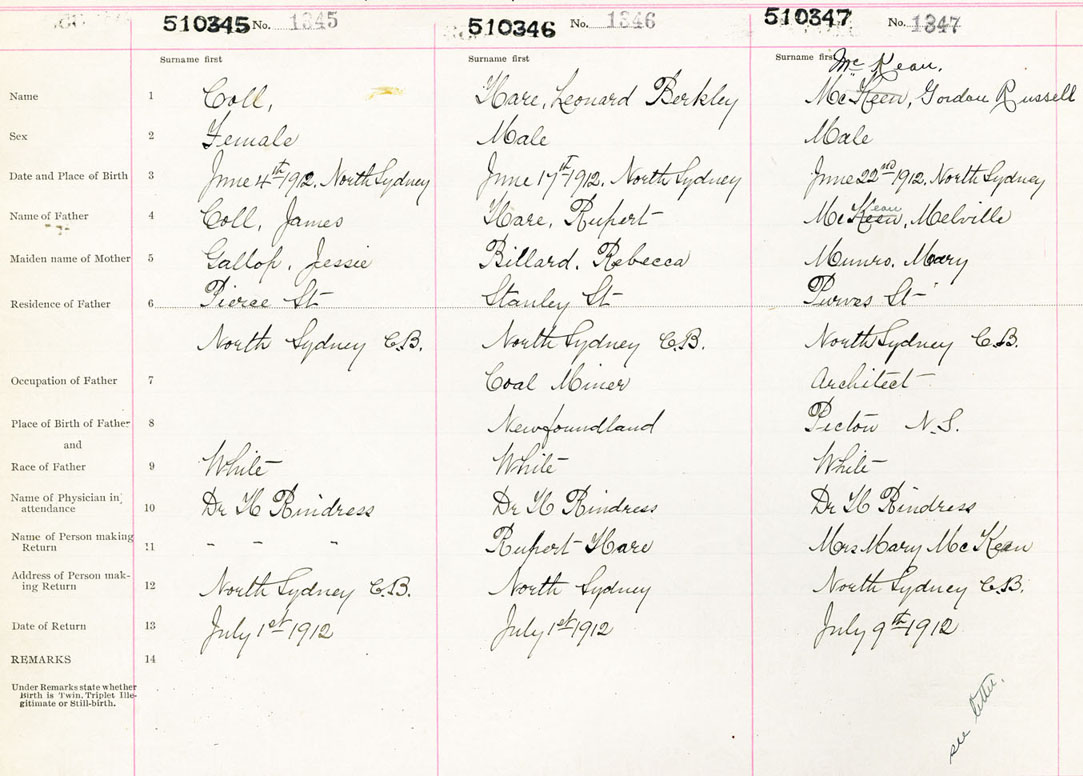 510345 No. 1345 510346 No. 1346 510347 No. 1347
Surname first Surname first Surname first Mc Kean,
Name 1 Coll, Hare, Leonard Berkley McKeen, Gordon Russell
Sex 2 Female Male Male
Date and Place of Birth 3 June 4th 1912, North Sydney June 17th 1912, North Sydney June 22nd 1912, North Sydney
Name of Father 4 Coll, James Hare, Rupert McKeen kean, Melville
Maiden name of Mother 5 Gallop, Jessie Billard, Rebecca Munro, Mary
Residence of Father 6 Pierce St Stanley St Purves St
North Sydney C.B. North Sydney C.B. North Sydney C.B.
Occupation of Father 7 Coal Miner Architect
Place of Birth of Father 8 Newfoundland Pictou N.S.
and
Race of Father 9 White White White
Name of Physician in attendance 10 Dr H Rindress Dr H Rindress Dr H Rindress
Name of Person making Return 11 - - - Rupert Hare Mrs Mary McKean
Address of Person mak-
ing Return 12 North Sydney C.B. North Sydney North Sydney C.B.
Date of Return 13 July 1st 1912 July 1st 1912 July 9th 1912
REMARKS 14
Under Remarks state whether
Birth is Twin, Triplet Ille-
gitimate or Still-birth.
see letter.